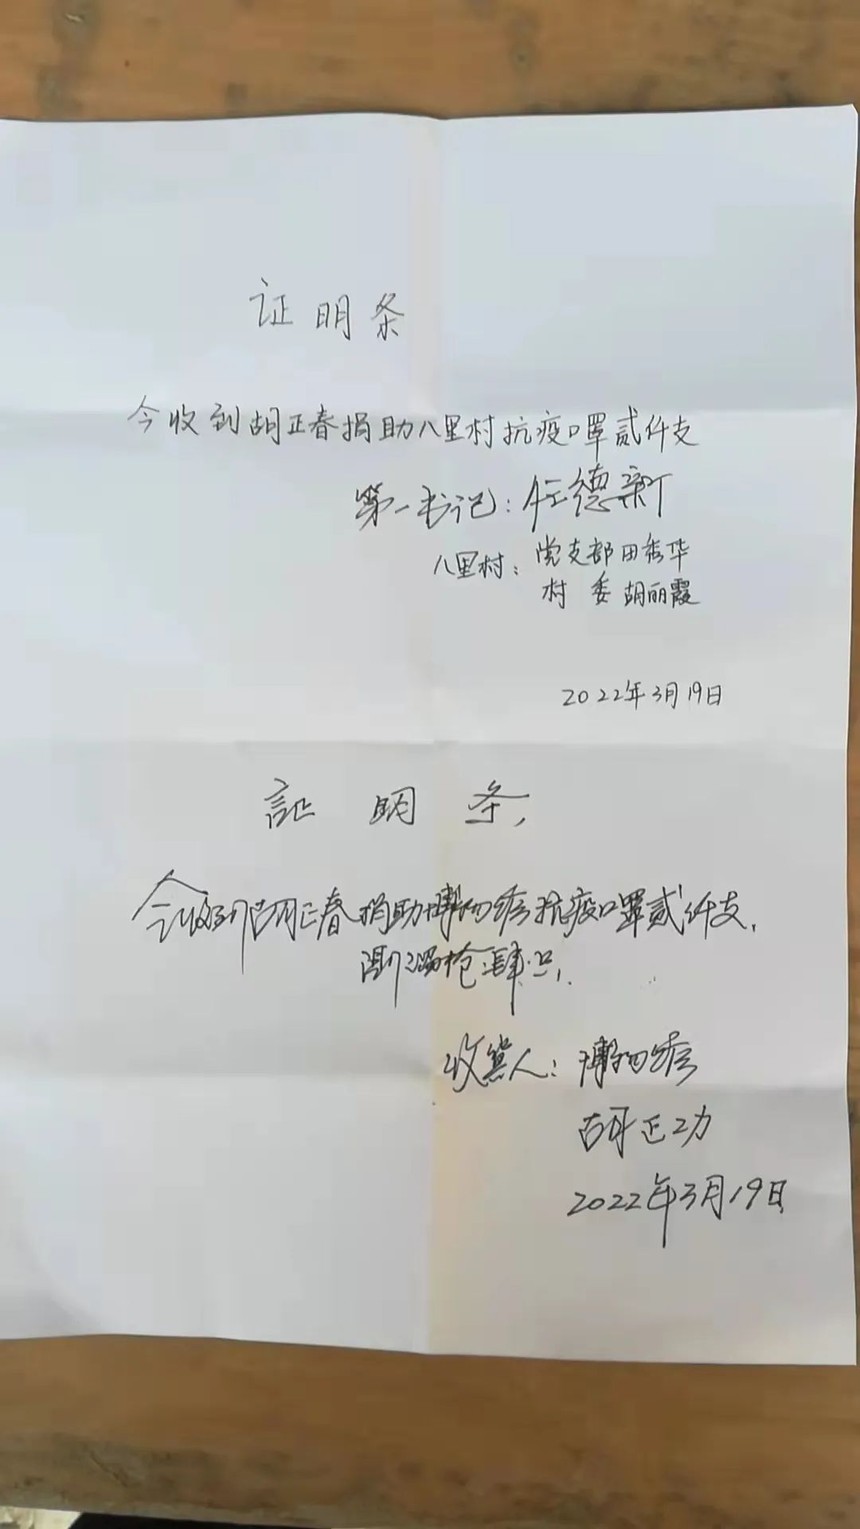 证明条
今收到胡正春捐助八里村抗疫口罩贰仟支
第一书记：任德新
八里村：党支部田秀华
村 委 胡丽霞
2022年3月19日
証明条,
今收到胡正春捐助博物馆抗疫口罩贰仟支,
测温枪肆只,
收货人：博物馆
胡正功
2022年3月19日